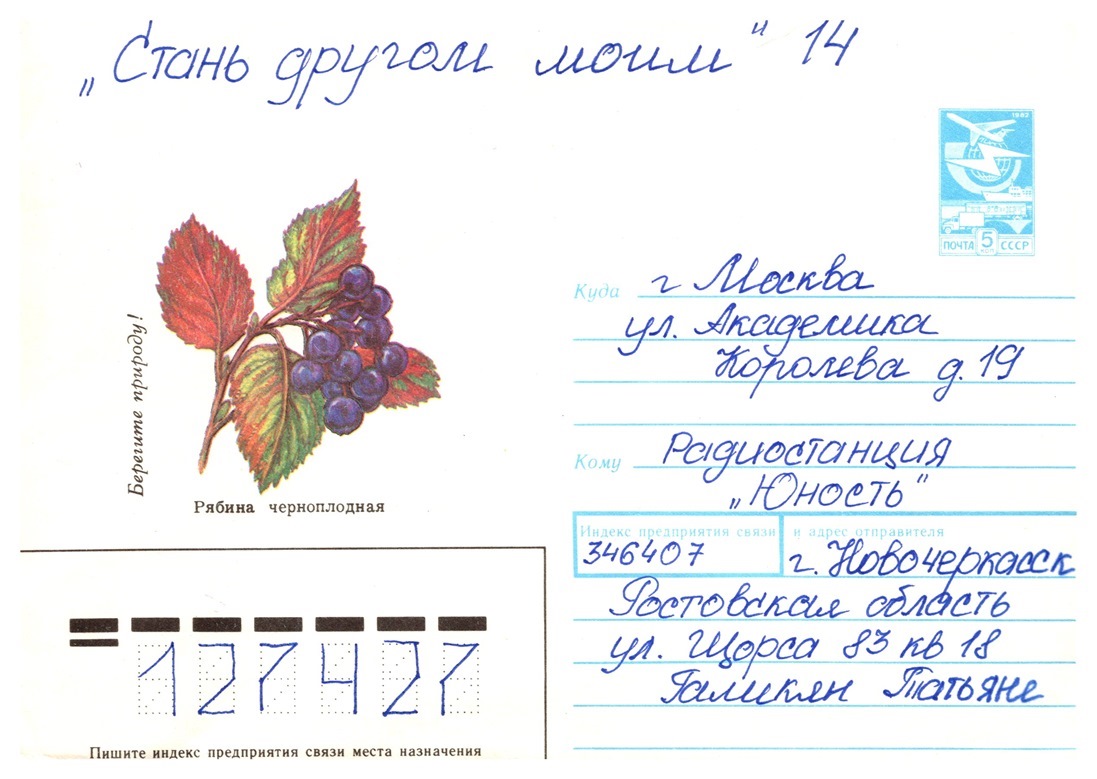 „Стань другом моим" 14
1982
ПОЧТА 5 КОП СССР
Куда г Москва
ул. Академика
Королева д. 19
Кому Радиостанция
„Юность"
Берегите природу!
Рябина черноплодная
Индекс предприятия связи и адрес отправителя
346407 г. Новочеркасск
Ростовская область
ул. Щорса 83 кв 18
Галикян Татьяне
127427
Пишите индекс предприятия связи места назначения